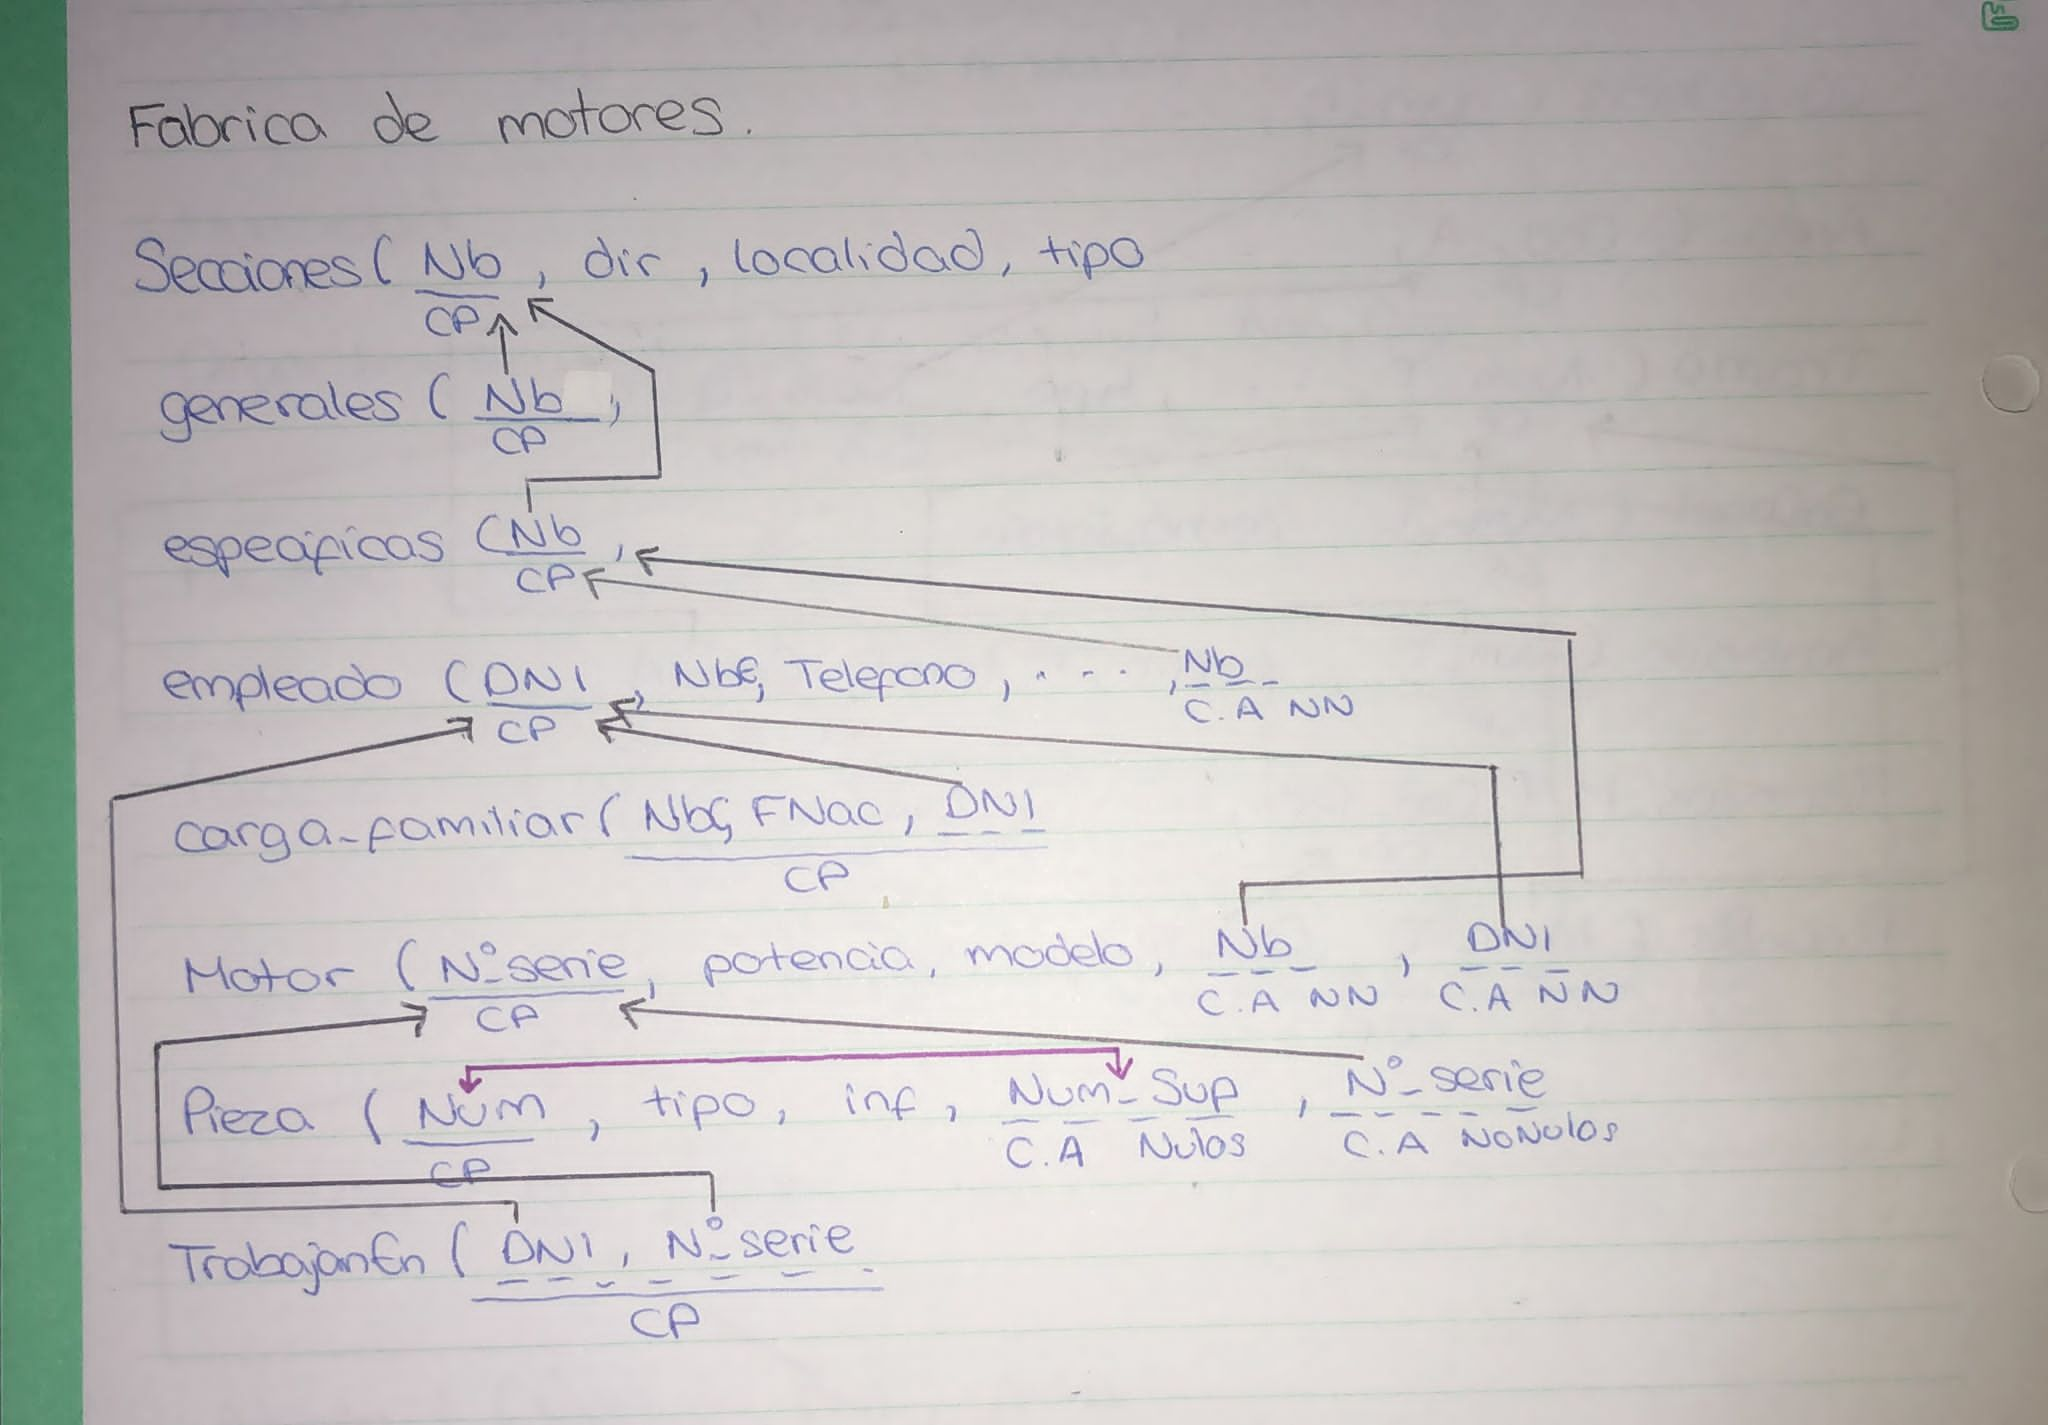 Fabrica de motores.
Secciones ( Nb, dir, localidad, tipo
CP
generales ( Nb,
CP
especificas ( Nb,
CP
empleado ( DNI, NbE, Telefono, . . . , Nb
CP C.A NN
carga_familiar ( NbC, FNac, DNI
CP
Motor ( Nº serie, potencia, modelo, Nb, DNI
CP C.A NN C.A NN
Pieza ( Num, tipo, inf, Num_Sup, Nº_serie
CP C.A Nulos C.A NoNulos
TrabajanEn ( DNI, Nº serie
CP